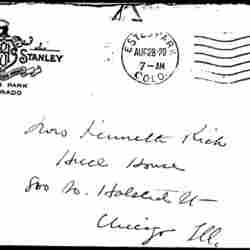 Stanley
PARK
RADO
ESTES PARK
AUG 28
7-AM
COLO.
Mrs Kenneth Rich
Hull House
800 So. Halsted St
Chicago Ill.